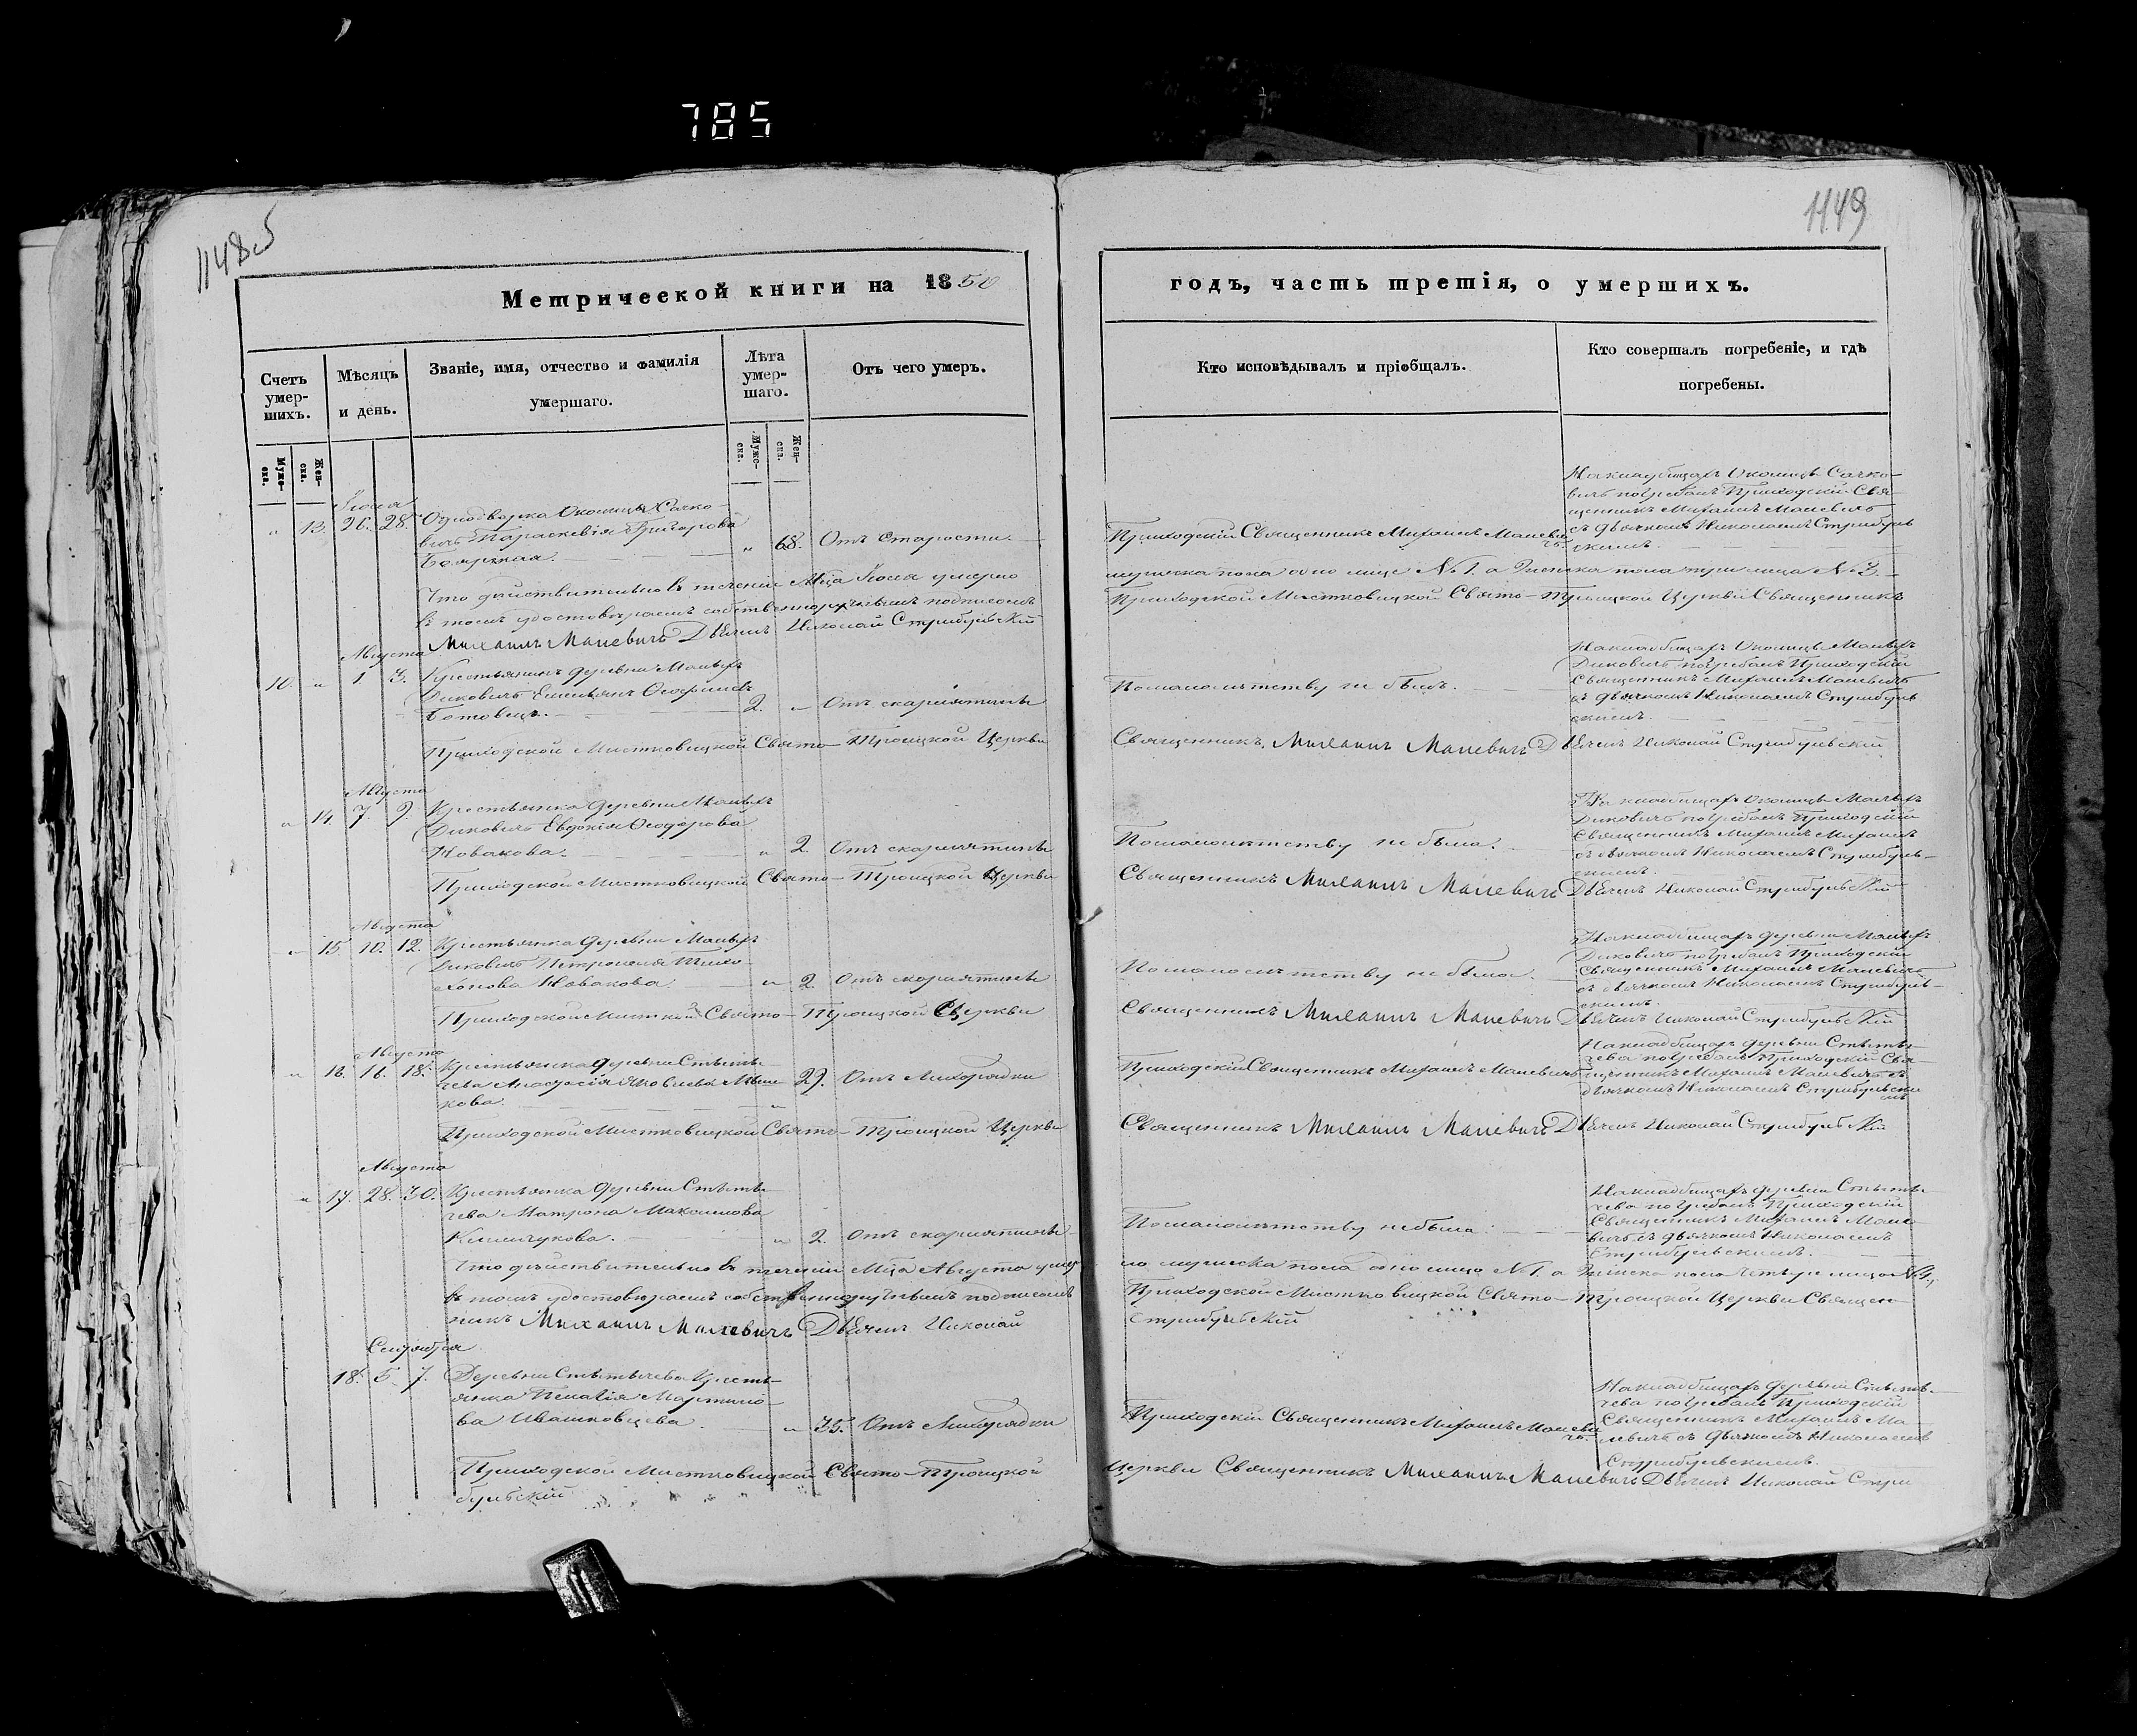 785
1148об
1149
Метрической книги на 1850
годъ, часть третія, о умершихъ.
Счетъ умер-шихъ.
Мѣсяцъ и день.
Званіе, имя, отчество и фамилія умершаго.
Лѣта умер-шаго.
Отъ чего умеръ.
Кто исповѣдывалъ и пріобщалъ.
Кто совершалъ погребеніе, и гдѣ погребены.
Муже-ска.
Жен-ска.
Муже-ска.
Жен-ска.
Іюля
" 13. 26. 28. Однодворка Околицы Сачко-
вичь Параскевія Григорова
" 68. Отъ старости.
Приходскій Священникъ Михаилъ Малеви-
чь.
На кладбищахъ Околицы Сачко-
вичь погребалъ Приходскій Свя-
щенникъ Михаилъ Малевичь
съ дьячкомъ Николаемъ Стрибуль
скимъ.
Что дѣйствительно въ теченіи Мца Іюля умерло
мужеска пола одно лице № 1. а Женска пола три лица № 3.
въ томъ удостовѣряемъ собственноручнымъ подписомъ
Приходской Мистковицкой Свято-Троицкой Церкви Священникъ
Михаилъ Малевичъ Дьячекъ Николай Стрибульскій
Августа
10. " 1 3. Крестьянинъ деревни Малыхъ
Диковичь Емельянъ
2. " Отъ скарлятины
По малолѣтству не былъ.
На кладбищахъ Околицы Малыхъ
Диковичь погребалъ Приходскій
Священникъ Михаилъ Малевичь
съ дьячкомъ Николаемъ Стрибуль
скимъ.
Приходской Мистковицкой Свято-Троицкой Церкви
Священникъ Михаилъ Малевичъ Дьячекъ Николай Стрибульскій
Августа
" 14. 7. 9. Крестьянка деревни Малыхъ
Диковичь Евдокія Ѳеодорова
Новакова.
" 2. Отъ скарлятины
По малолѣтству не была.
На кладбищахъ Околицы Малыхъ
Диковичь погребалъ Приходскій
Священникъ Михаилъ Михаилъ
съ дьячкомъ Николаемъ Стрибуль-
скимъ.
Приходской Мистковицкой Свято-Троицкой Церкви
Священникъ Михаилъ Малевичъ Дьячекъ Николай Стрибульскій
Августа
" 15 10. 12. Крестьянка деревни Малыхъ
Диковичь Петронеля Тихо-
Новакова.
" 2. Отъ скарлятины
По малолѣтству не была.
На кладбищахъ деревни Малыхъ
Диковичь погребалъ Приходскій
Священникъ Михаилъ Малевичь
съ дьячкомъ Николаемъ Стрибуль-
скимъ.
Приходской Свято-Троицкой Церкви
Священникъ Михаилъ Малевичъ Дьячекъ Николай Стрибульскій
Августа
" 16. 16. 18. Крестьянка деревни Стыты-
чева Анастасія Яковлева
кова.
" 29. Отъ Лихорадки
Приходскій Священникъ Михаилъ Малевичъ
На кладбищахъ деревни Стыты-
чева погребалъ Приходскій Свя-
щенникъ Михаилъ Малевичь съ
дьячкомъ Николаемъ Стрибульски
мъ
Приходской Мистковицкой Свято-Троицкой Церкви
Священникъ Михаилъ Малевичъ Дьячекъ Николай Стрибульскій
Августа
" 17. 28. 30. Крестьянка деревни Стыты-
чева Матрона Максимова
Климчукова.
" 2. Отъ скарлятины
По малолѣтству не была
На кладбищахъ деревни Стыты-
чева погребалъ Приходскій
Священникъ Михаилъ Мале-
вичь съ дьячкомъ Николаемъ
Стрибульскимъ.
Что дѣйствительно въ теченіи Мца Августа умер
ло мужеска пола одно лице № 1. а Женска пола четыре лица № 4,
въ томъ удостовѣряемъ собственноручнымъ подписомъ
Приходской Мистковицкой Свято-Троицкой Церкви Священ-
никъ Михаилъ Малевичъ Дьячекъ Николай
Стрибульскій
Сентября
18. 5 7. Деревни Стытычева Кресть-
янка Пелагія Мартино-
ва Ивашковцева
" 35. Отъ Лихорадки
Приходскій Священникъ Михаилъ Малеви
чь.
На кладбищахъ деревни Стыты-
чева погребалъ Приходскій
Священникъ Михаилъ Ма
левичь съ дьячкомъ Николаемъ
Стрибульскимъ.
Приходской Мистковицкой Свято-Троицкой
Церкви Священникъ Михаилъ Малевичъ Дьячекъ Николай Стри
бульскій